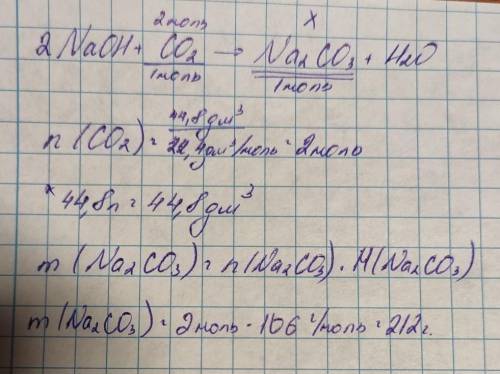 2моль x
2NaOH + CO₂ → Na₂CO₃ + H₂O
1моль 1моль
n(CO₂) = 44,8дм³ / 22,4дм³/моль = 2моль
* 44,8л = 44,8дм³
m(Na₂CO₃) = n(Na₂CO₃) · M(Na₂CO₃)
m(Na₂CO₃) = 2моль · 106 г/моль = 212г.